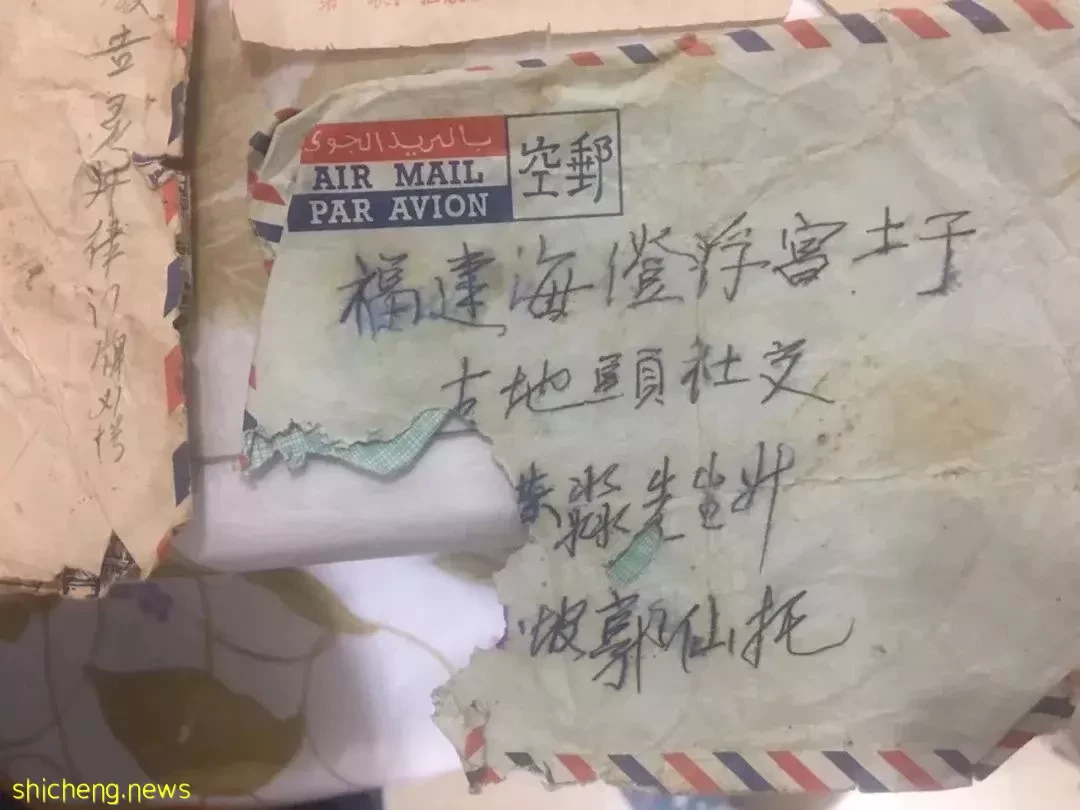 吉灵
律门牌
بالبريد الجوي
AIR MAIL
PAR AVION
空郵
福建海澄浮宫土于
古地頭社交
淼先生升
坡郭仙托
shicheng.news